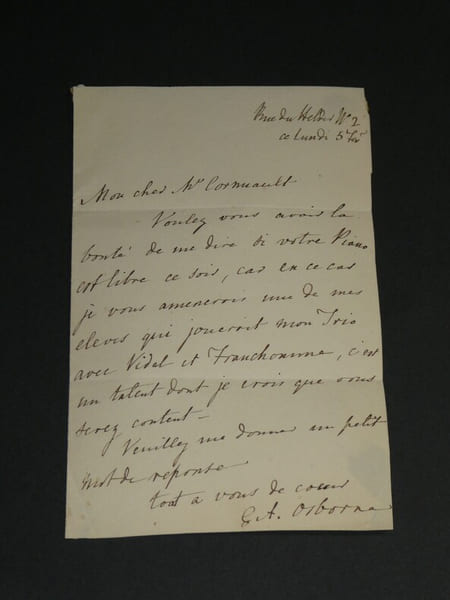 Rue du Helder No 2
ce lundi 5
Mon cher Mr Cornuault
Voulez vous avoir la
bonté de me dire si votre Piano
est libre ce soir, car en ce cas
je vous amenerois une de mes
eleves qui joueroit mon Trio
avec Vidal et Franchomme, c'est
un talent dont je crois que vous
serez content —
Veuillez me donner un petit
mot de reponse
tout a vous de coeur
G. A. Osborne